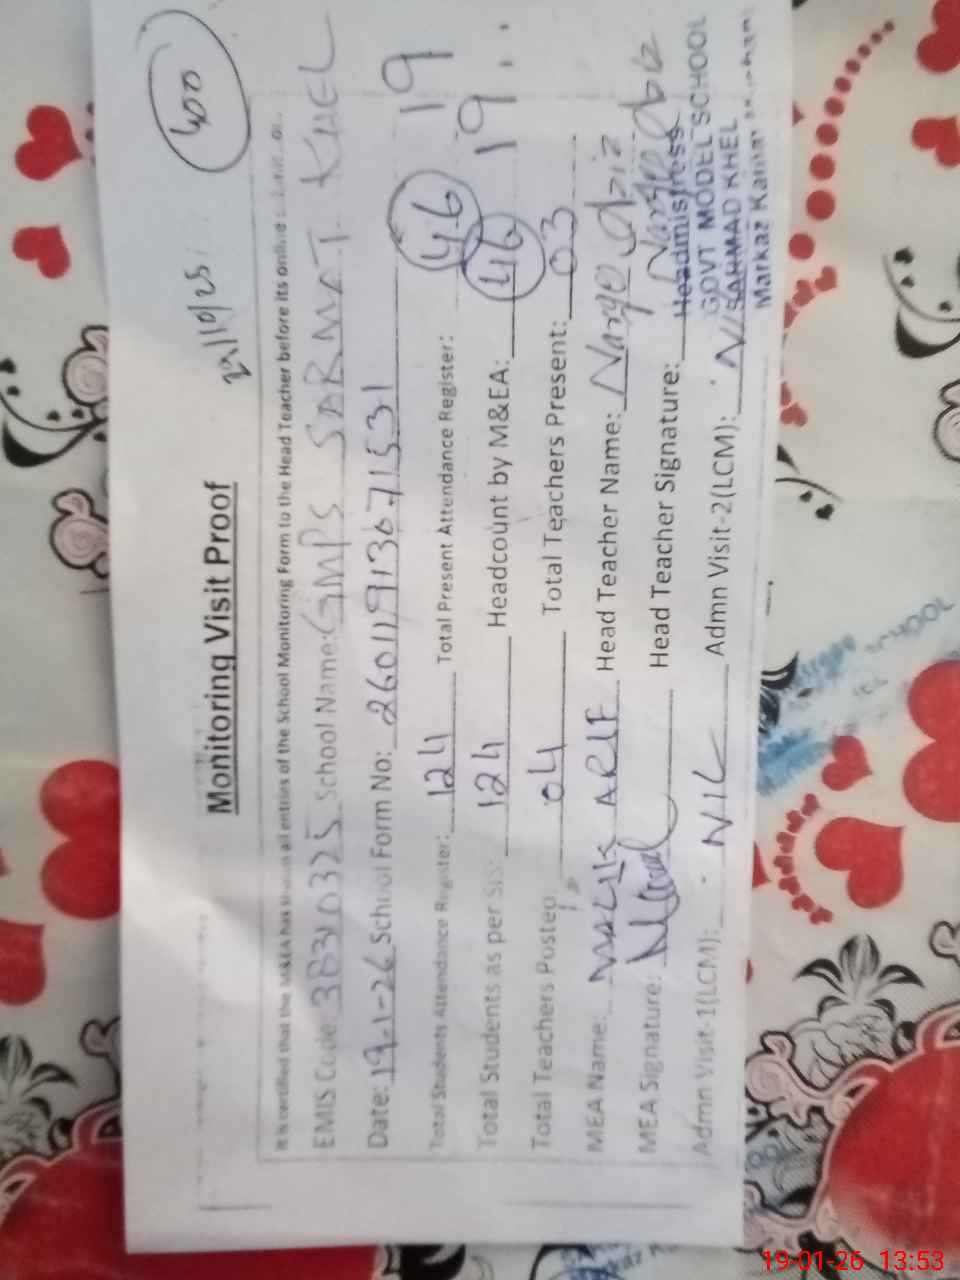 400
Monitoring Visit Proof
It is certified that the M&EA has shown all entries of the School Monitoring Form to the Head Teacher before its online
EMIS Code: 38310325 School Name: GMPS SARMAT KHEL
Date: 19-1-26 School Form No: 26011913671531
Total Students Attendance Register: 124 Total Present Attendance Register: 46 19
Total Students as per SIS: 124 Headcount by M&EA: 46 19
Total Teachers Posted: 04 Total Teachers Present: 03
MEA Name: MALIK ARIF Head Teacher Name:
MEA Signature: Head Teacher Signature:
Headmistress
GOVT MODEL SCHOOL
Admn Visit-1(LCM): NIL Admn Visit-2(LCM):
Markaz
SCHOOL
19-01-26 13:53